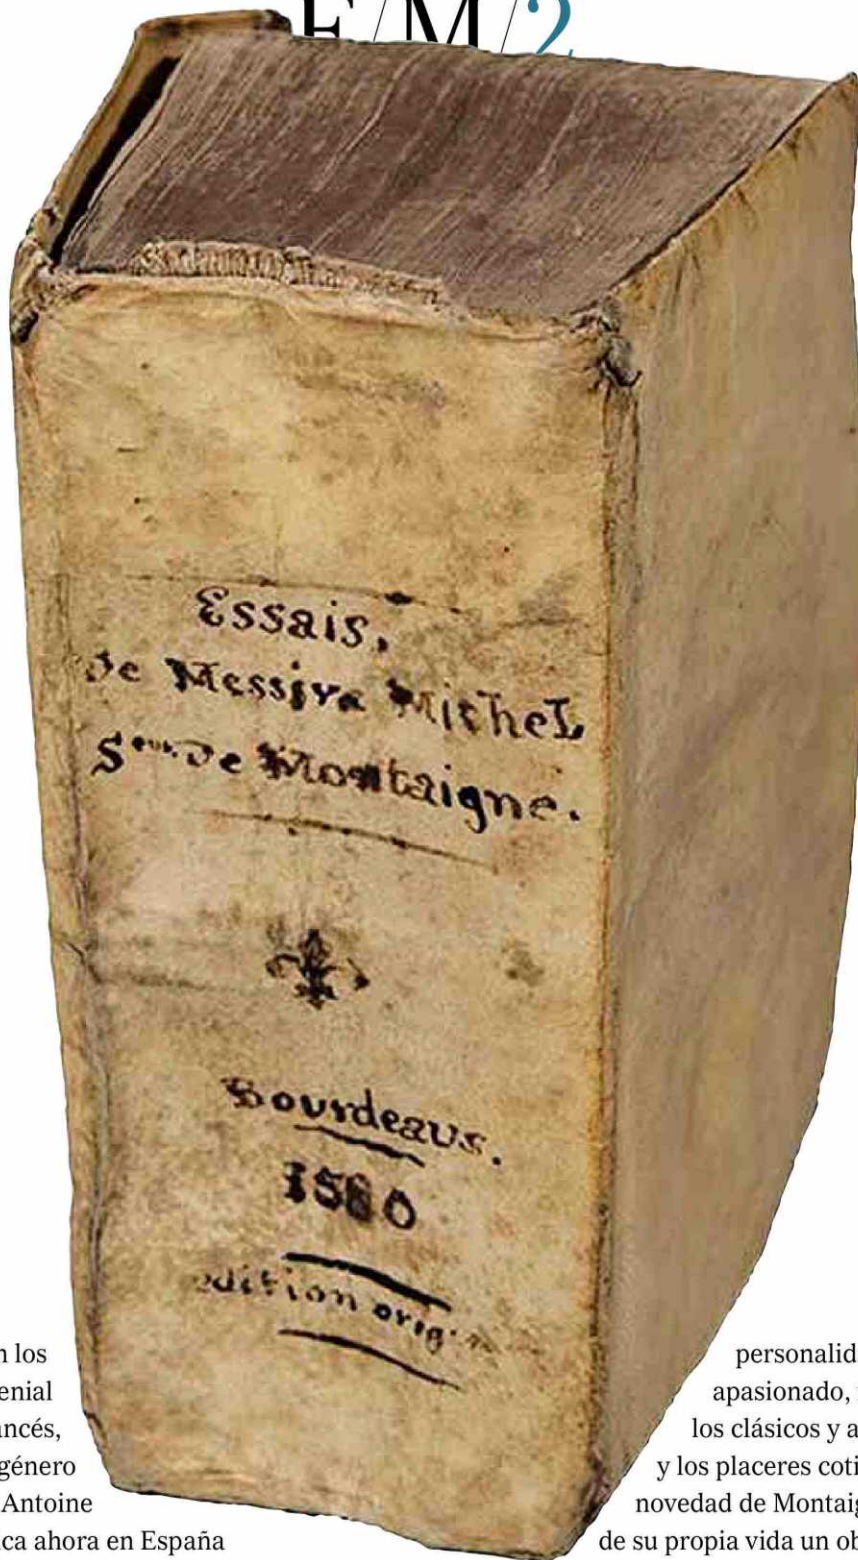 E/M/2
Essais,
de Messire Michel
Seur. de Montaigne.
Bourdeaus.
1580
edition orig
n los
enial
ancés,
género
Antoine
ca ahora en España
personalid
apasionado,
los clásicos y a
y los placeres coti
novedad de Montaig
de su propia vida un ob